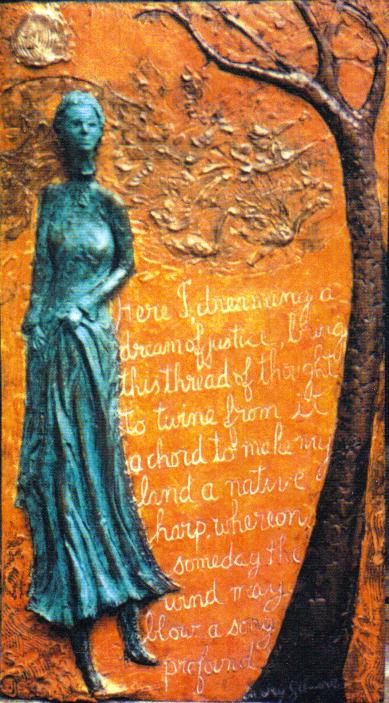 Here I, dreaming a
dream of justice, bring
this thread of thought
to twine from it
a chord to make my
land a native
harp, whereon,
someday the
wind may
blow a song
profound